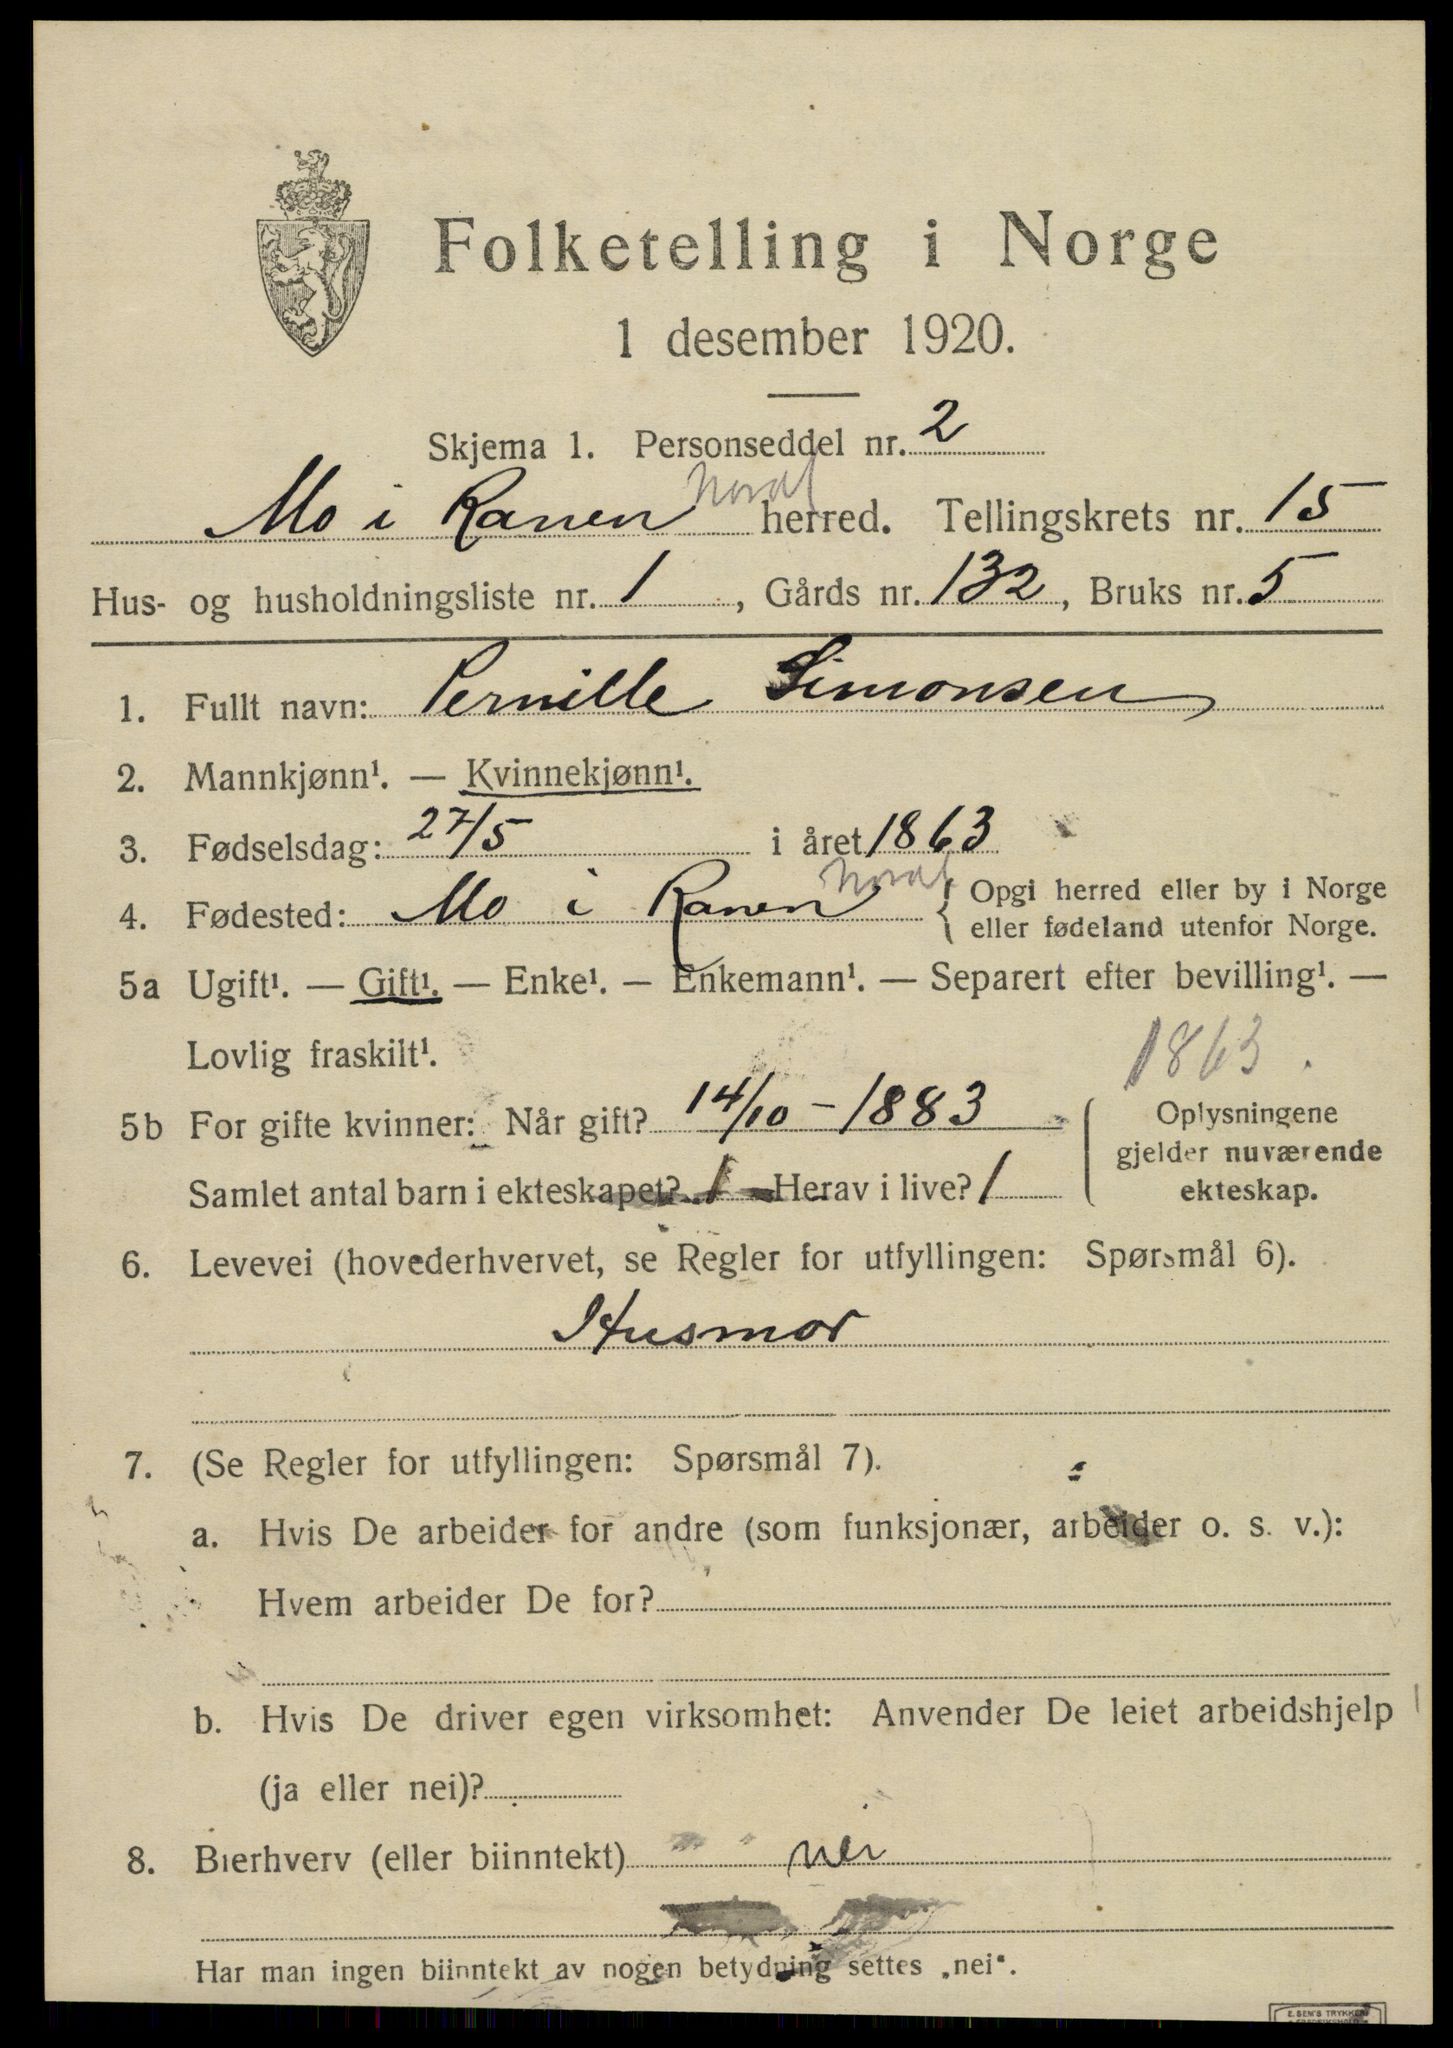 Folketelling i Norge
1 desember 1920.
Skjema 1. Personseddel nr. 2
Nordl
Mo i Ranen herred. Tellingskrets nr. 15
Hus- og husholdningsliste nr. 1, Gårds nr. 132, Bruks nr. 5
1. Fullt navn: Pernille Simonsen
2. Mannkjønn¹. — Kvinnekjønn¹.
3. Fødselsdag: 27/5 i året 1863
Nordl
4. Fødested: Mo i Ranen { Opgi herred eller by i Norge
eller fødeland utenfor Norge.
5a Ugift¹. — Gift¹. — Enke¹. — Enkemann¹. — Separert efter bevilling¹. —
Lovlig fraskilt¹.
1863.
5b For gifte kvinner: Når gift? 14/10 - 1883
Samlet antal barn i ekteskapet? 1 Herav i live? 1
Oplysningene
gjelder nuværende
ekteskap.
6. Levevei (hovederhvervet, se Regler for utfyllingen: Spørsmål 6).
Husmor
7. (Se Regler for utfyllingen: Spørsmål 7).
a. Hvis De arbeider for andre (som funksjonær, arbeider o. s. v.):
Hvem arbeider De for?
b. Hvis De driver egen virksomhet: Anvender De leiet arbeidshjelp
(ja eller nei)?
8. Bierhverv (eller biinntekt) nei
Har man ingen biinntekt av nogen betydning settes „nei“.